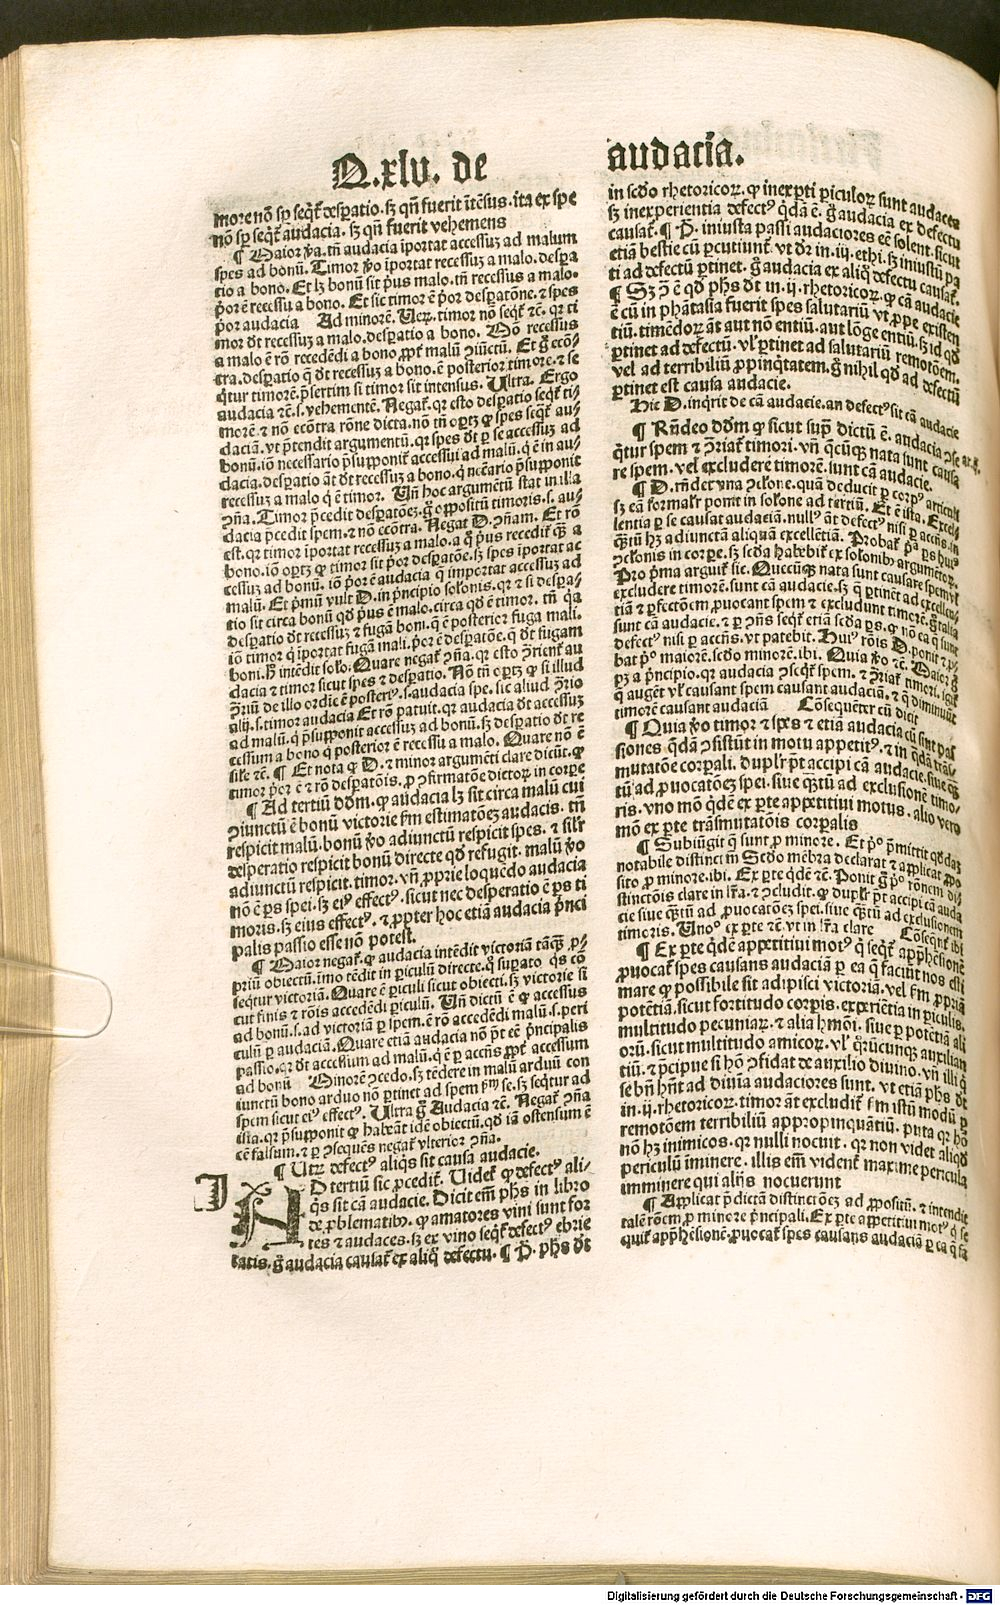 Q.xlv. de audacia.
more nõ sp̱ seqt᷑ desꝑatio. sꝫ qñ fuerit ĩtẽsus. ita ex spe
nõ sp̱ seqt᷑ audacia. sꝫ qñ fuerit vehemens
¶ Maior ꝓba. tñ audacia ĩportat accessuꝫ ad malum
spes ad bonũ. Timor ꝟo ĩportat recessuꝫ a malo. desꝑa
tio a bono. Et lꝫ bonũ sit p̃us malo. tñ recessus a malo.
p̃or ẽ recessu a bono. Et sic timor ẽ p̃or desꝑatõne. ⁊ spes
p̃or audacia Ad minorẽ. Uerũ. timor nõ seqt᷑ ⁊c. qꝛ ti
mor dꝛ recessuꝫ a malo. desꝑatio a bono. Mõ recessus
a malo ẽ rõ recedẽdi a bono ꝓpt̃ malũ ɔiũctũ. Et g̃ ecõ⸗
tra. desꝑatio q̃ dꝛ recessuꝫ a bono. ẽ posterior timore. ⁊ se
q̃tur timorẽ. p̃sertim si timor sit intensus. Ultra. Ergo
audacia ⁊c. s. vehementẽ. Negat᷑. qꝛ esto desꝑatio seqt᷑ ti⸗
morẽ ⁊ nõ ecõtra rõne dicta. nõ tñ oꝑtꝫ ꝙ spes seqt᷑ au⸗
daciã. vt p̃tendit argumentũ. qꝛ spes dꝛ ꝑ se accessuꝫ ad
bonũ. iõ necessario p̃supponit accessui ad malũ. q̃ ẽ in au⸗
dacia. desꝑatio ãt dꝛ recessuꝫ a bono. q̃ nc̃ario p̃supponit
recessuꝫ a malo q̃ ẽ timor. Uñ hoc argumẽtũ stat in illa
ɔña. Timor p̃cedit desꝑatõeꝫ. g̃ oppositũ timoris. s. au⸗
dacia p̃cedit spem. ⁊ nõ ecõtra. Negat D. ɔñam. Et rõ
est. qꝛ timor ĩportat recessuꝫ a malo. a q̃ p̃us recedit᷑ q̃ a
bono. iõ oꝑtꝫ ꝙ timor sit p̃or desꝑatõe. sꝫ spes ĩportat ac
cessuꝫ ad bonũ. iõ p̃or ẽ audacia q̃ importat accessuꝫ ad
malũ. Et p̃mũ vult D. in p̃ncipio solonis. qꝛ ⁊ si desꝑa⸗
tio sit circa bonũ qd̃ p̃us ẽ malo. circa qd̃ ẽ timor. tñ qa
desꝑatio dꝛ recessuꝫ ⁊ fugã boni. q̃ ẽ posterior fuga mali.
iõ timor q̃ ĩportat fugã mali. p̃or ẽ desꝑatõe. q̃ dꝛ fugam
boni. h̃ intẽdit solo. Quare negat᷑ ɔña. qꝛ esto ɔ̃rient᷑ au
dacia ⁊ timor sicut spes ⁊ desꝑatio. Nõ tñ oꝑtꝫ ꝙ si illud
ɔ̃riũ de illo ordiẽ ẽ posteriꝰ. s. audacia spe. sic aliud ɔ̃rio
alij. s. timor audacia Et rõ patuit. qꝛ audacia dꝛ accessuꝫ
ad malũ. q̃ p̃supponit accessuꝫ ad bonũ. sꝫ desꝑatio dꝛ re
cessum a bono q̃ posterior ẽ recessu a malo. Quare nõ ẽ
sil̃e ⁊c. ¶ Et nota ꝙ D. ⁊ minor argumẽti clare dicũt. ꝙ
timor p̃or ẽ ⁊ rõ desꝑatõis. ꝓ ɔfirmatõe dictoꝝ in corꝑe
¶ Ad tertiũ dõm. ꝙ audacia lꝫ sit circa malũ cui
ɔiunctũ ẽ bonũ victorie fm̃ estimatõeꝫ audacis. tñ
respicit malũ. bonũ ꝟo adiunctũ respicit spes. ⁊ sil̃r
desperatio respicit bonũ directe qd̃ refugit. malũ ꝟo
adiunctũ respicit. timor. vñ ꝓprie loquẽdo audacia
nõ ẽ ꝑs spei. sꝫ eiꝰ effectꝰ. sicut nec desperatio ẽ ꝑs ti
moris. sꝫ eius effectꝰ. ⁊ ꝓpter hoc etiã audacia p̃nci
palis passio esse nõ potest.
¶ Maior negat᷑. ꝙ audacia intẽdit victoriã tãq̃ꝫ ꝓ⸗
priũ obiectũ. imo tẽdit in ꝑiculũ directe. q̃ suꝑato q̃s cõ
seq̃tur victoriã. Quare ẽ ꝑiculi sicut obiecti. sꝫ victorie si
cut finis ⁊ rõis accedẽdi ꝑiculũ. Uñ dictũ ẽ ꝙ accessus
ad bonũ. s. ad victoriã ꝑ spem. ẽ rõ accedẽdi malũ. s. ꝑeri
culũ ꝑ audaciã. Quare etiã audacia nõ p̃t eẽ p̃ncipalis
passio. qꝛ dꝛ accessum ad malũ. q̃ ẽ ꝑ accñs ꝓpt̃ accessum
ad bonũ Minorẽ ɔcedo. sꝫ tẽdere in malũ arduũ con
iunctũ bono arduo nõ ꝑtinet ad spem p̃m se. sꝫ seq̃tur ad
spem sicut eiꝰ effectꝰ. Ultra g̃ Audacia ⁊c. Negat᷑ ɔña
ista. qꝛ p̃supponit ꝙ habeãt idẽ obiectũ. qd̃ iã ostensum ẽ
eẽ falsum. ⁊ ꝑ ɔsequẽs negat᷑ vlterior ɔña.
¶ Utꝝ defectꝰ aliq̃s sit causa audacie.
AD tertiũ sic ꝓcedit᷑. Uidet᷑ ꝙ defectꝰ ali⸗
q̃s sit cã audacie. Dicit em̃ phs in libro
de ꝓblematibꝰ. ꝙ amatores vini sunt for
tes ⁊ audaces. sꝫ ex vino seqt᷑ defectꝰ ebrie
tatis. g̃ audacia causat᷑ ex aliq̃ defectu. ¶ P̃. phs dꝛ
in scdo rhetoricoꝝ. ꝙ inexꝑti ꝑiculoꝝ sunt audaces
sꝫ inexperientia defectꝰ q̃dã ẽ. g̃ audacia ex defectu
causat᷑. ¶ P̃. iniusta passi audaciores eẽ solent. sicut
etiã bestie cũ ꝑcutiunt᷑. vt dꝛ in. iij. ethi. sꝫ iniustũ pa
ti ad defectũ ꝑtinet. g̃ audacia ex aliq̃ defectu causat᷑.
¶ Sꝫ ɔ̃ ẽ qd̃ phs dꝛ in. ij. rhetoricoꝝ. ꝙ cã audacie
ẽ cũ in phãtasia fuerit spes salutariũ vt ꝓpe existen
tiũ. timẽdoꝝ ãt aut nõ entiũ. aut lõge entiũ. sꝫ id qd̃
ꝑtinet ad defectũ. vl̃ ꝑtinet ad salutariũ remotõem.
vel ad terribiliũ ꝓpinq̃tatem. g̃ nihil qd̃ ad defectũ
ꝑtinet est causa audacie.
Hic D. inq̃rit de cã audacie. an defectꝰ sit cã audacie
¶ Rñdeo dõm ꝙ sicut sup̃ dictũ ẽ. audacia ɔse
q̃tur spem ⁊ ɔ̃riat᷑ timori. vñ q̃cũq̃ nata sunt causa
re spem. vel excludere timorẽ. sunt cã audacie.
¶ D. rñdet vna ɔclone. quã deducit ꝑ corpꝰ articuli
sꝫ eã formalr̃ ponit in solone ad tertiũ. Et ẽ ista. Excel⸗
lentia ꝑ se causat audaciã. nullꝰ ãt defectꝰ nisi ꝑ accñs. in
q̃ꝫtũ hꝫ adiunctã aliquã excellẽtiã. Probat᷑ p̃a ꝑs huiꝰ
ɔclonis in corꝑe. sꝫ scda habebit᷑ ex solonibꝰ argumẽtoꝝ.
Pro p̃ma arguit᷑ sic. Quecũq̃ nata sunt causare spem vl̃
excludere timorẽ. sunt cã audacie. sꝫ q̃ ꝑtinẽt ad excellen⸗
tiã ⁊ ꝑfectõem ꝓuocant spem ⁊ excludunt timorẽ. g̃ talia
sunt cã audacie. ⁊ ꝑ ɔñs seqt᷑ etiã scda ꝑs. ꝙ nõ ea q̃ sunt
defectꝰ nisi ꝑ accñs. vt patebit. Huiꝰ rõis D. ponit ⁊ ꝓ⸗
bat p̃o maiorẽ. scdo minorẽ. ibi. Quia ꝟo ⁊c. Maior g̃
pꝫ a p̃ncipio. qꝛ audacia ɔseqt᷑ spem. ⁊ ɔ̃riat᷑ timori. igit᷑
q̃ augẽt vl̃ causant spem causant audaciã. ⁊ q̃ diminuũt
timorẽ causant audaciã Cõsequẽter cũ dicit
¶ Quia ꝟo timor ⁊ spes ⁊ etiã audacia cũ sint pas
siones q̃dã ɔsistũt in motu appetitꝰ. ⁊ in q̃dã trãs⸗
mutatõe corꝑali. duplr̃ p̃t accipi cã audacie. siue q̃ꝫ
tũ ad ꝓuocatõeꝫ spei. siue q̃ꝫtũ ad exclusionẽ timo⸗
ris. vno mõ q̃dẽ ex ꝑte appetitiui motus. alio vero
mõ ex ꝑte trãsmutatõis corꝑalis
¶ Subiũgit q̃ sunt ꝓ minore. Et p̃o p̃mittit qd̃daꝫ
notabile distinctiuũ Scdo mẽbra declarat ⁊ applicat ꝓpo
sito ꝓ minore. ibi. Ex ꝑte q̃dẽ ⁊c. Ponit g̃ p̃o rõnem di⸗
stinctõis clare in lr̃a. ⁊ ɔcludit. ꝙ duplr̃ p̃t accipi cã auda
cie siue q̃ꝫtũ ad ꝓuocatõeꝫ spei. siue q̃ꝫtũ ad exclusionem
timoris. Uno mõ ex ꝑte ⁊c. vt in lr̃a clare Cõseqñt᷑ ibi
¶ Ex ꝑte q̃dẽ appetitiui motꝰ q̃ seqt᷑ apphẽsionẽ
ꝓuocat᷑ spes causans audaciã ꝑ ea q̃ faciũt nos esti
mare ꝙ possibile sit adipisci victoriã. vel fm̃ ꝓpriã
potẽtiã. sicut fortitudo corꝑis. exꝑiẽtia in ꝑiculis.
multitudo pecuniaꝝ. ⁊ alia hm̃oi. siue ꝑ potẽtiã ali
orũ. sicut multitudo amicoꝝ. vl̃ q̃rũcunqꝫ auxilian
tiũ. ⁊ p̃cipue si hõ ɔfidat de auxilio diuino. vñ illi q̃
se bñ hñt ad diuĩa audaciores sunt. vt etiã phs dꝛ
in. ij. rhetoricoꝝ. timor ãt excludit᷑ fm̃ istũ modũ ꝑ
remotõem terribiliũ appropinquãtiũ. puta qꝛ hõ
nõ hꝫ inimicos. qꝛ nulli nocuit. qꝛ non videt aliqd̃
periculũ iminere. illis em̃ vident᷑ maxime pericula
imminere qui alijs nocuerunt
¶ Applicat p̃dictã distinctiõeꝫ ad ꝓpositũ. ⁊ intendit
talẽ rõem ꝓ minore p̃ncipali. Ex ꝑte appetitiui motꝰ q̃ se
quit᷑ apphẽsionẽ. ꝓuocat᷑ spes causans audaciã ꝑ ea q̃ fa